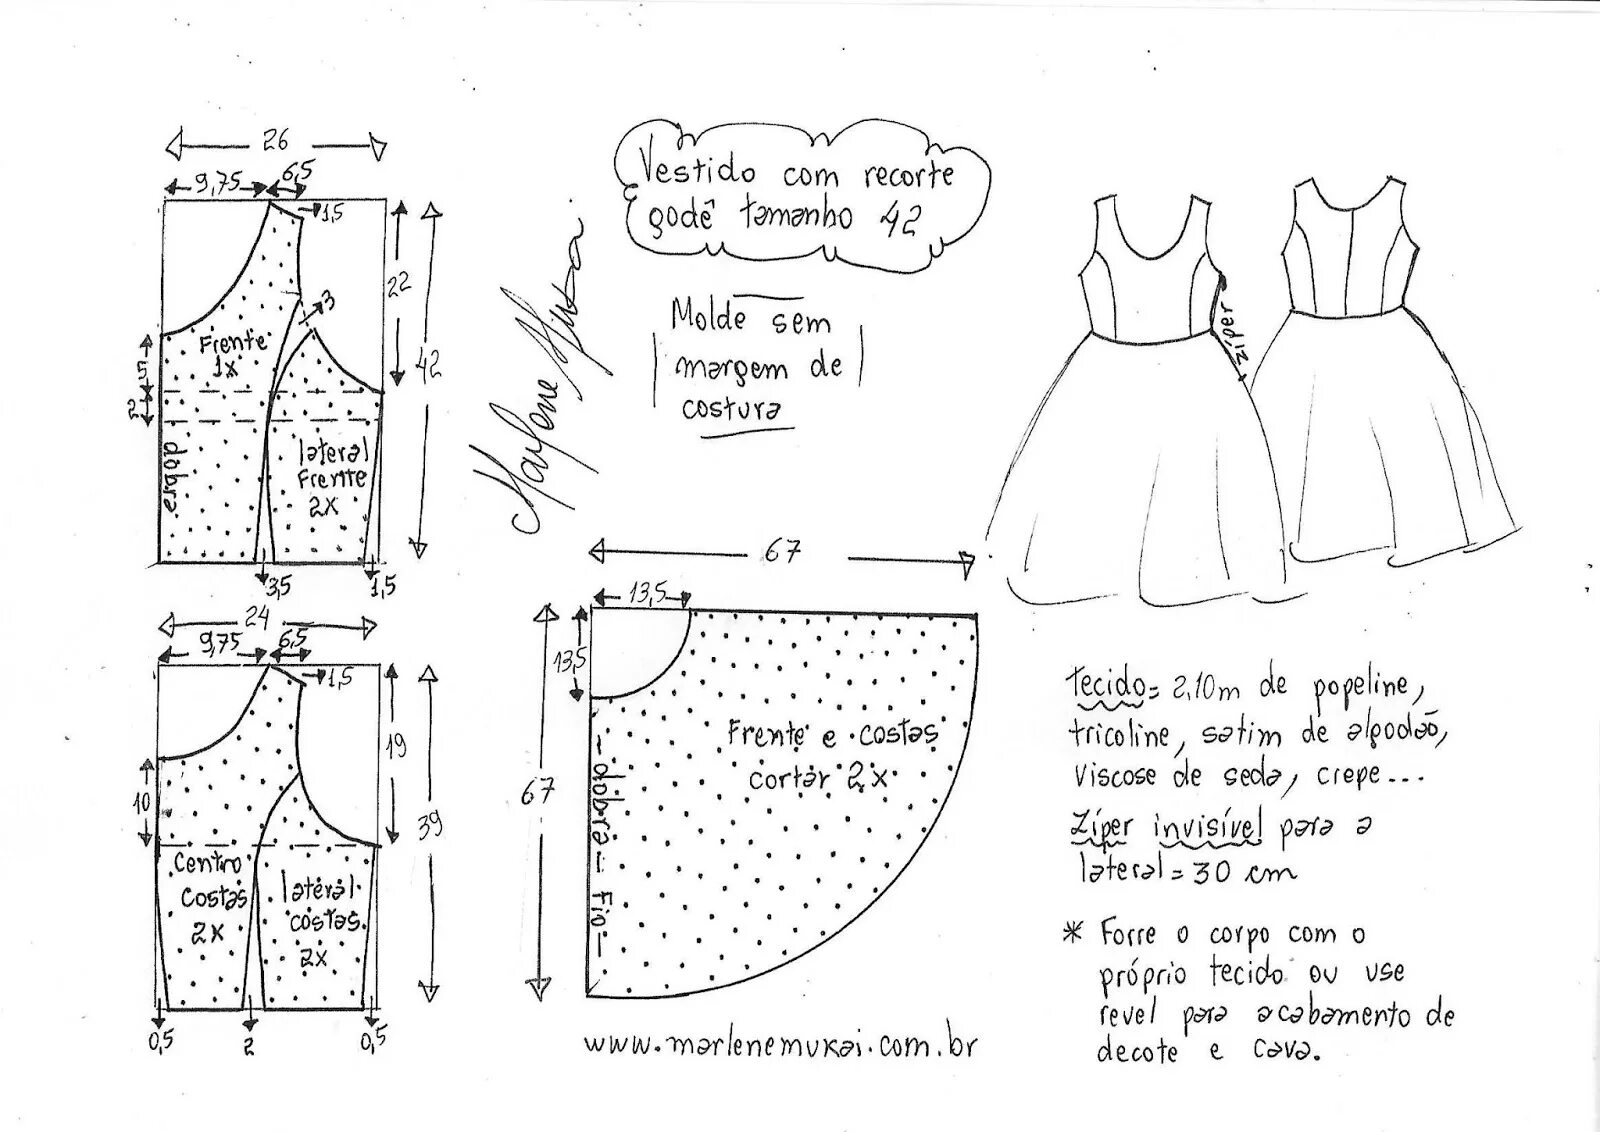 26
9,75
6,5
1,5
22
42
3
Frente
1x
5
2
dobra
lateral
Frente
2x
3,5
1,5
Vestido com recorte
godê tamanho 42
Molde sem
margem de
costura
zíper
24
9,75
6,5
1,5
19
39
10
Centro
Costas
2x
lateral
costas
2x
0,5
2
0,5
67
13,5
13,5
67
Frente e costas
cortar 2x
dobra — Fio —
www.marlenemukai.com.br
tecido = 2,10m de popeline,
tricoline, satim de algodão,
viscose de seda, crepe...
Zíper invisível para a
lateral = 30 cm
* Forre o corpo com o
próprio tecido ou use
revel para acabamento de
decote e cava.